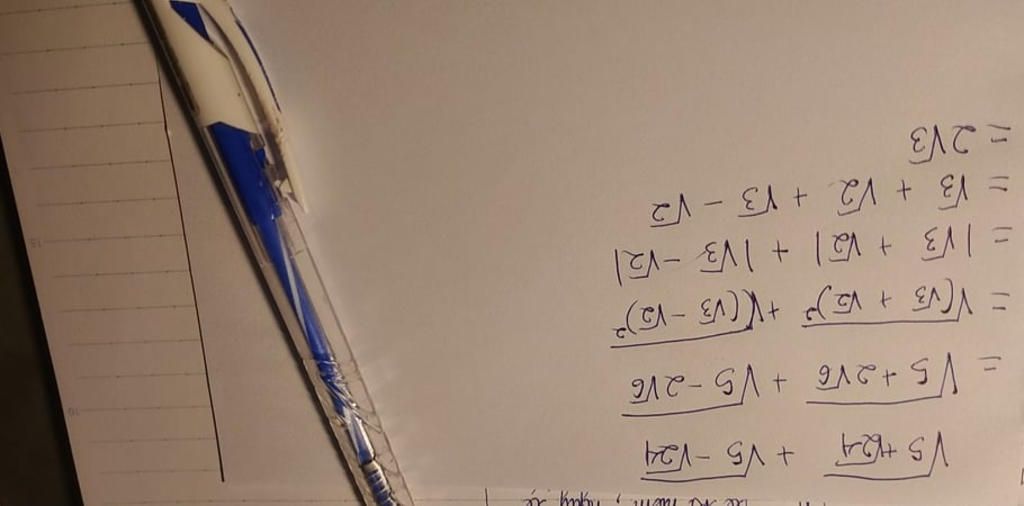 √(5+√24) + √(5-√24)
= √(5+2√6) + √(5-2√6)
= √(√3 + √2)² + √(√3 - √2)²
= |√3 + √2| + |√3 - √2|
= √3 + √2 + √3 - √2
= 2√3